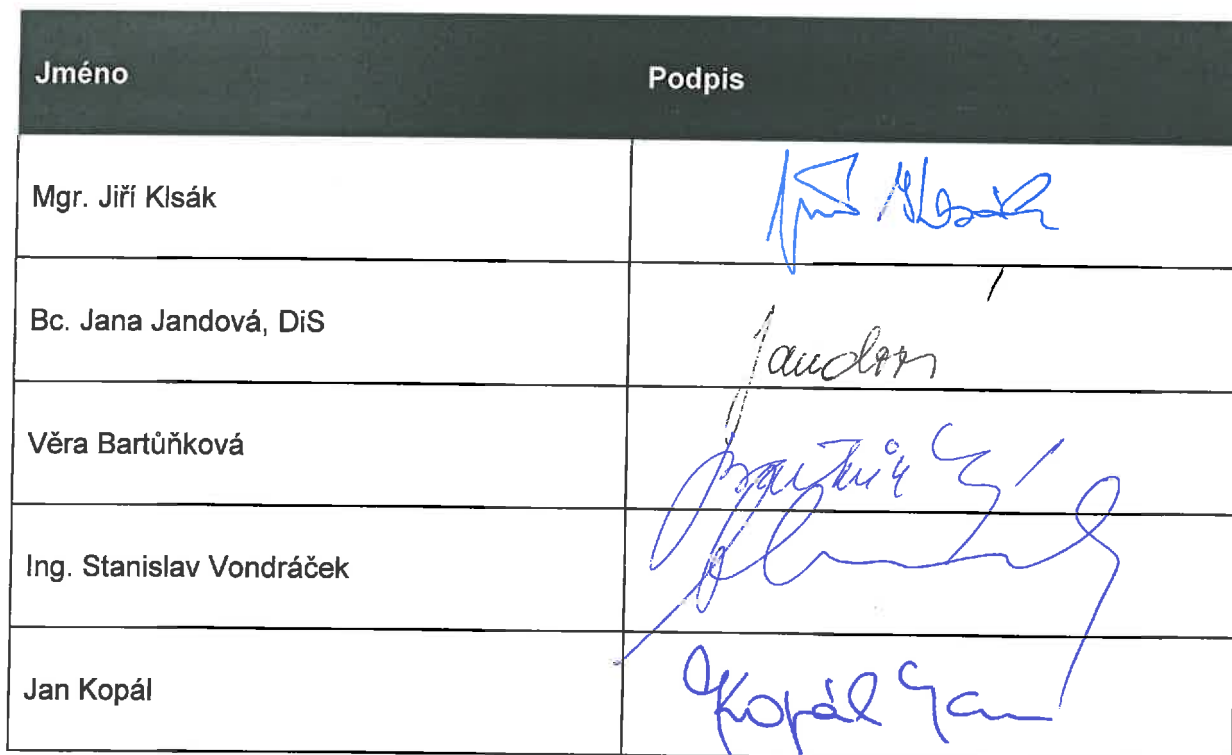 Jméno Podpis
Mgr. Jiří Klsák Jiří Klsák
Bc. Jana Jandová, DiS Jandová
Věra Bartůňková
Ing. Stanislav Vondráček
Jan Kopál Kopál Jan